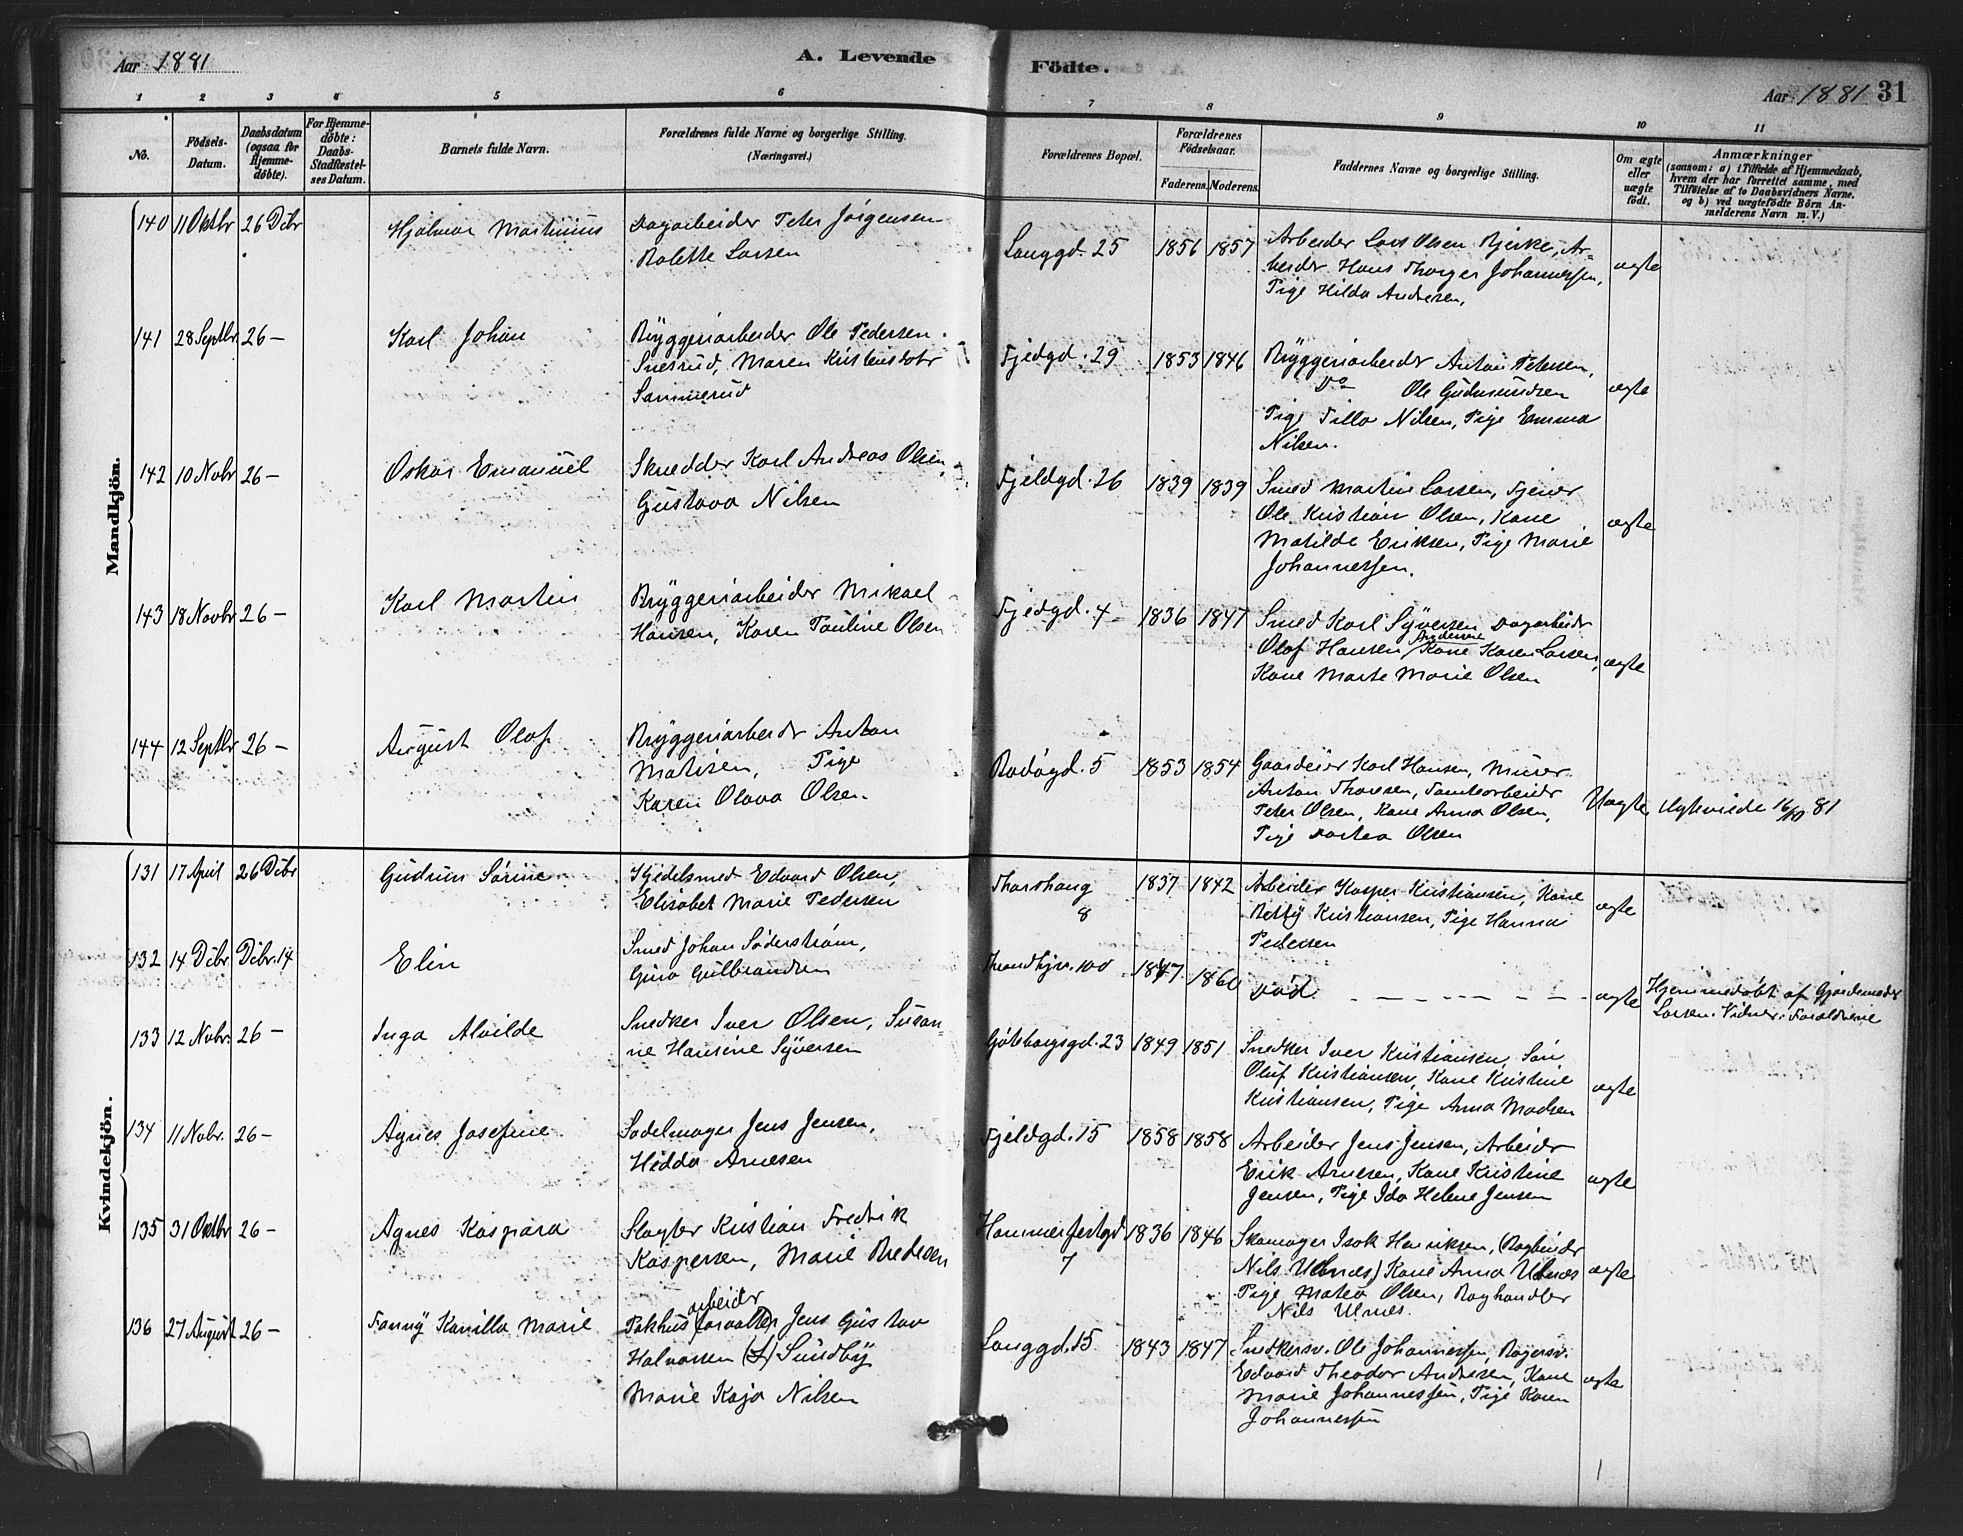 Aar 1881
A. Levende
Födte.
Aar 1881 31
1 2 3 4 5 6 7 8 9 10 11
No.
Födsels-
Datum.
Daabsdatum
(ogsaa for
Hjemme-
döbte).
For Hjemme-
döbte:
Daabs-
Stadfæstel-
ses Datum.
Barnets fulde Navn.
Forældrenes fulde Navne og borgerlige Stilling.
(Næringsvei.)
Forældrenes Bopæl.
Forældrenes
Födselsaar.
Faderens. Moderens.
Faddernes Navne og borgerlige Stilling.
Om ægte
eller
uægte
födt.
Anmærkninger
(saasom: a) i Tilfælde af Hjemmedaab,
hvem der har forrettet samme, med
Tilföielse af to Daabsvidners Navne,
og b) ved uægtefödte Börn An-
melderens Navn m. V.)
Mandkjön.
140 11 Oktbr 26 Dcbr Hjalmar Martinius
Dagarbeider Peter Jörgensen
Bolette Larsen
Langgd. 25 1856 1857
Arbeider Lars Olsen Bjerke, Ar-
beider Hans Thorger Johannessen,
Pige Hilda Andresen,
ægte
141 28 Septbr 26 — Karl Johan
Bryggeriarbeider Ole Pedersen
Snesrud, Maren Kristensdatr
Sammerud
Fjeldgd. 29 1853 1846
Bryggeriarbeider Anton Petersen,
Do Ole Gudmundsen
Pige Tilla Nilsen, Pige Emma
Nilsen.
ægte
142 10 Novbr 26 — Oskar Emanuel
Skrædder Karl Andreas Olsen,
Gustava Nilsen
Fjeldgd. 26 1839 1839
Smed Martin Larsen, Tjener
Ole Kristian Olsen, Kone
Matilde Eriksen, Pige Marie
Johannessen.
ægte
143 18 Novbr 26 — Karl Martin
Bryggeriarbeider Mikael
Hansen, Karen Pauline Olsen
Fjeldgd. 4 1836 1847
Smed Karl Syversen Dagarbeider
Olaf Hansen Kone Karen Larsen,
Kone Marte Marie Olsen
ægte
144 12 Septbr 26 — August Olaf
Bryggeriarbeider Anton
Matisen, Pige
Karen Olava Olsen.
Bodögd. 5 1853 1854
Gaardeier Karl Hansen, Murer
Anton Thoresen, Tomtearbeider
Peter Olsen, Kone Anna Olsen,
Pige Dortea Olsen
Uægte
Ægteviede 16/10 81
Kvindekjön.
131 17 April 26 Dcbr Gudrun Sörine
Kjedelsmed Edvard Olsen,
Elisabet Marie Pedersen
Thorshaug
8
1837 1842
Arbeider Kasper Kristiansen, Kone
Betty Kristiansen, Pige Hanna
Pedersen
ægte
132 14 Dcbr Dcbr. 14 Elin
Smed Johan Söderström,
Gina Gulbrandsen
Trondhjv. 100 1847 1860
Död. — — — —
ægte
Hjemmedöbt af Gjordemoder
Larsen. Vidner: Forældrene
133 12 Novbr. 26 — Inga Alvilde
Snedker Iver Olsen, Susan-
ne Hansine Syversen
Göteborgsgd. 23 1849 1851
Snedker Iver Kristiansen, Sön
Oluf Kristiansen, Kone Kristine
Kristiansen, Pige Anna Madsen
ægte
134 11 Novbr. 26 — Agnes Josefine
Sadelmager Jens Jensen,
Hedda Arnesen
Fjeldgd. 15 1858 1858
Arbeider Jens Jensen, Arbeider
Erik Arnesen, Kone Kristine
Jensen, Pige Ida Helene Jensen
ægte
135 31 Oktbr 26 — Agnes Kaspara
Slagter Kristian Fredrik
Kaspersen, Marie Bredesen
Hammerfestgd
7
1836 1846
Skomager Isak Henriksen, (Bogbinder
Nils Ulnæs) Kone Anna Ulnæs
Pige Matea Olsen, Boghandler
Nils Ulnes.
ægte
136 27 August 26 — Fanny Kamilla Marie
arbeider
Pakhus(forvalter) Jens Gustav
Halvorsen (L) Sundby
Marie Kaja Nilsen
Langgd. 15 1843 1847
Snedkersv. Ole Johannessen, Bagersv.
Edvard Theodor Andresen, Kone
Marie Johannessen, Pige Karen
Johannessen
ægte